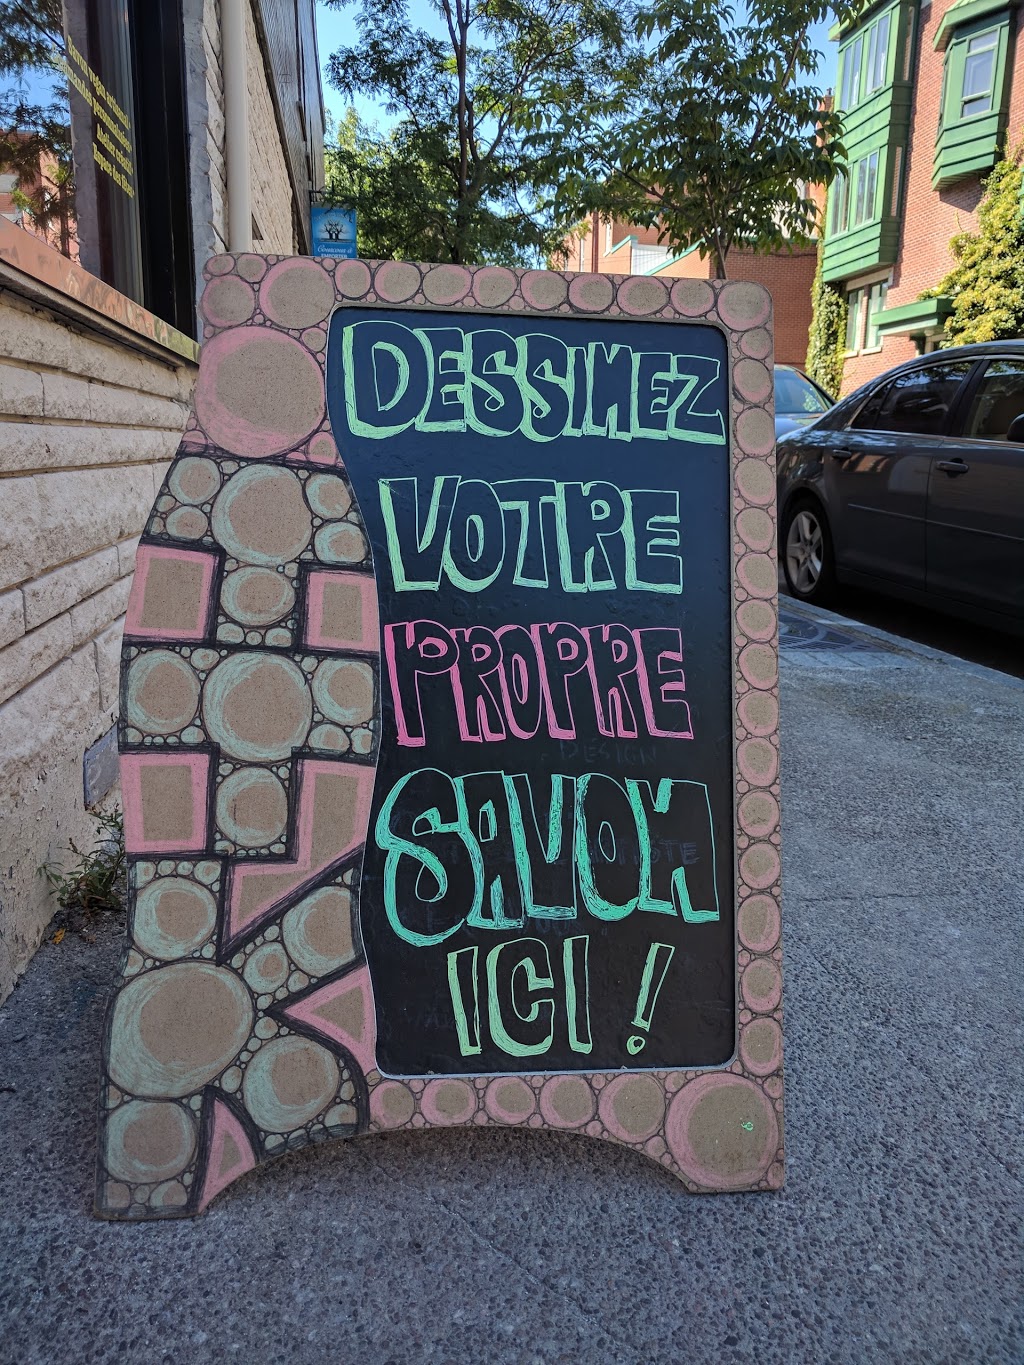 DESSINEZ
VOTRE
PROPRE
SAVON
ICI !
DESIGN